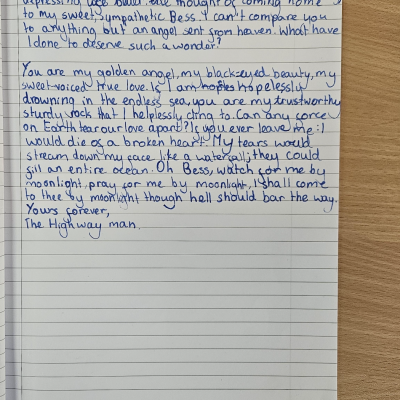 depressing, but the thought of coming home
to my sweet, sympathetic Bess. I can't compare you
to anything but an angel sent from heaven. What have
I done to deserve such a wonder?
You are my golden angel, my black-eyed beauty, my
sweet voiced true love. If I am hopelessly
drowning in the endless sea, you are my trustworthy
sturdy rock that I helplessly cling to. Can any force
on Earth tear our love apart? If you ever leave me: I
would die of a broken heart. My tears would
stream down my face like a waterfall; they could
fill an entire ocean. Oh Bess, watch for me by
moonlight, pray for me by moonlight, I shall come
to thee by moonlight though hell should bar the way.
Yours forever,
The Highway man.